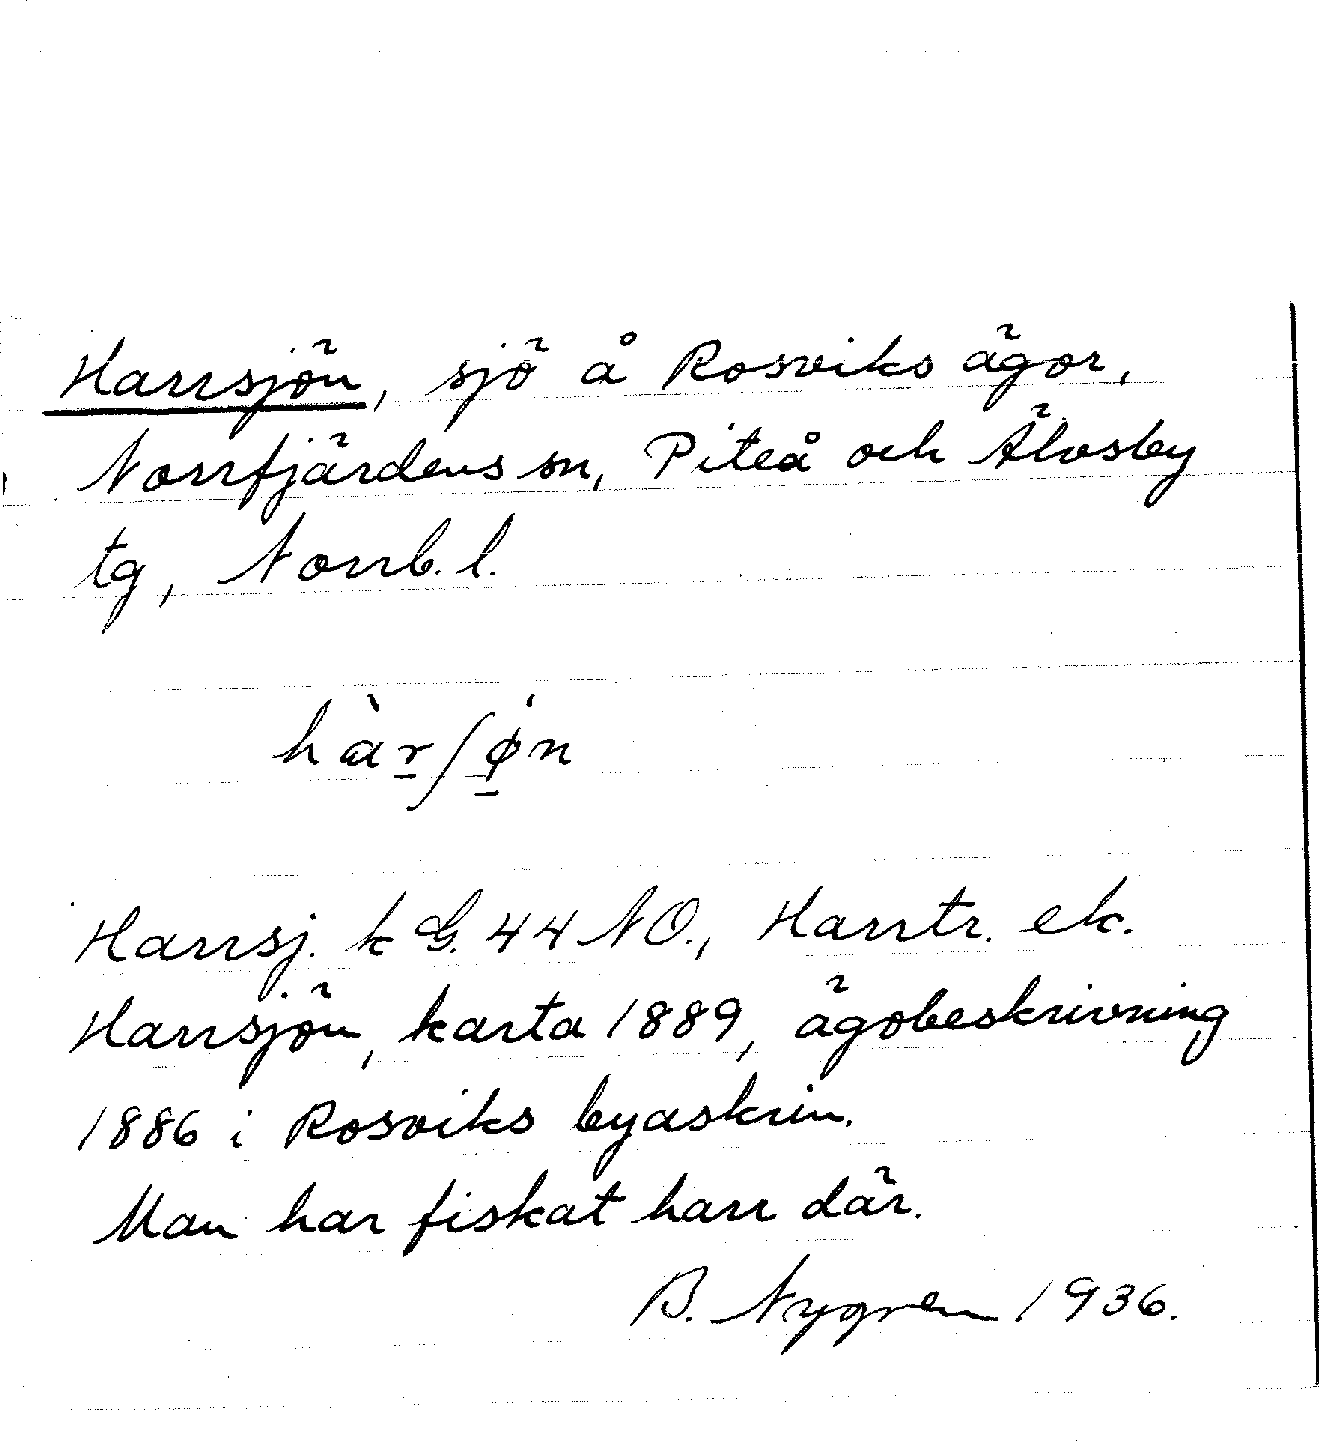 Harrsjön, sjö å Rosviks ägor,
Norrfjärdens sn, Piteå och Älvsby
tg, Norrb. l.
hàr̲ʃǿ̲n
Harrsj. k G. 44 NO., Harrtr. ek.
Harrsjön, karta 1889, ägobeskrivning
1886 i Rosviks byaskrin.
Man har fiskat harr där.
B. Nygren 1936.